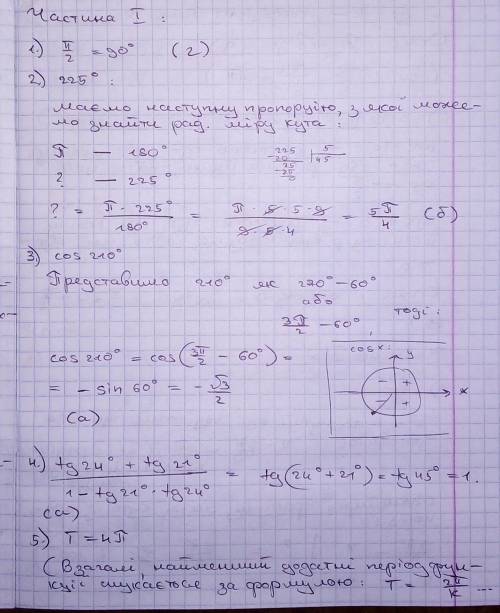 Частина I :
1.) π/2 = 90° (г)
2.) 225° :
маємо наступну пропорцію, з якої може-
мо знайти рад. міру кута :
π — 180°
? — 225°
225 | 5
-20 | 45
25
-25
0
? = π · 225° / 180° = π · 5 · 5 · 9 / 9 · 5 · 4 = 5π/4 (б)
3.) cos 210°
Представимо 210° як 270° - 60°
або
3π/2 - 60°, тоді :
cos 210° = cos(3π/2 - 60°) =
= - sin 60° = - √3/2
(а)
cos x :
y
- +
x
- +
4.) tg 24° + tg 21° / 1 - tg 21° · tg 24° = tg(24° + 21°) = tg 45° = 1.
(а)
5.) T = 4π
(Взагалі, найменший додатні період фун-
кції шукається за формулою : T = 2π/k ...